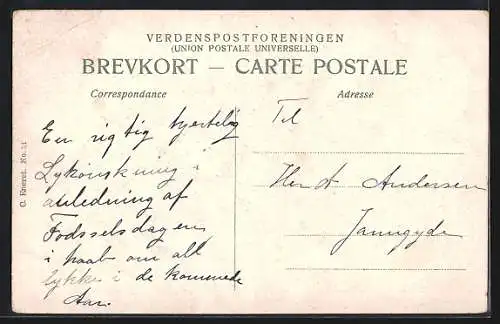 VERDENSPOSTFORENINGEN
(UNION POSTALE UNIVERSELLE)
BREVKORT — CARTE POSTALE
Correspondance
Adresse
En rigtig hjertelig
Lykønskning i
anledning af
Fødselsdagen
i haab om alt
Lykke i de kommende
Aar.
Til
Herr A Andersen
No. 51